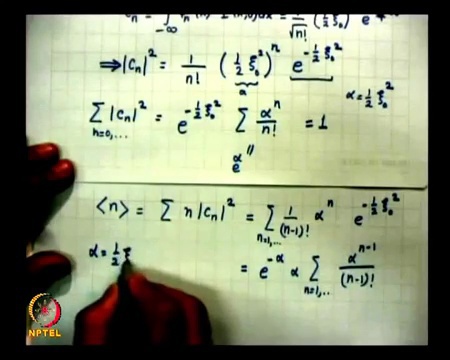 Cₙ = ∫_{-∞} ... dx = 1/√n! (½ ξ₀²) e
⇒ |Cₙ|² = 1/n! (½ ξ₀²)ⁿ e^{-½ ξ₀²}
α
α = ½ ξ₀²
∑_{n=0,...} |Cₙ|² = e^{-½ ξ₀²} ∑ αⁿ/n! = 1
e^α
⟨n⟩ = ∑ n |Cₙ|² = ∑_{n=1,...} 1/(n-1)! αⁿ e^{-½ ξ₀²}
α = ½ ξ
= e^{-α} α ∑_{n=1,..} α^{n-1}/(n-1)!
NPTEL